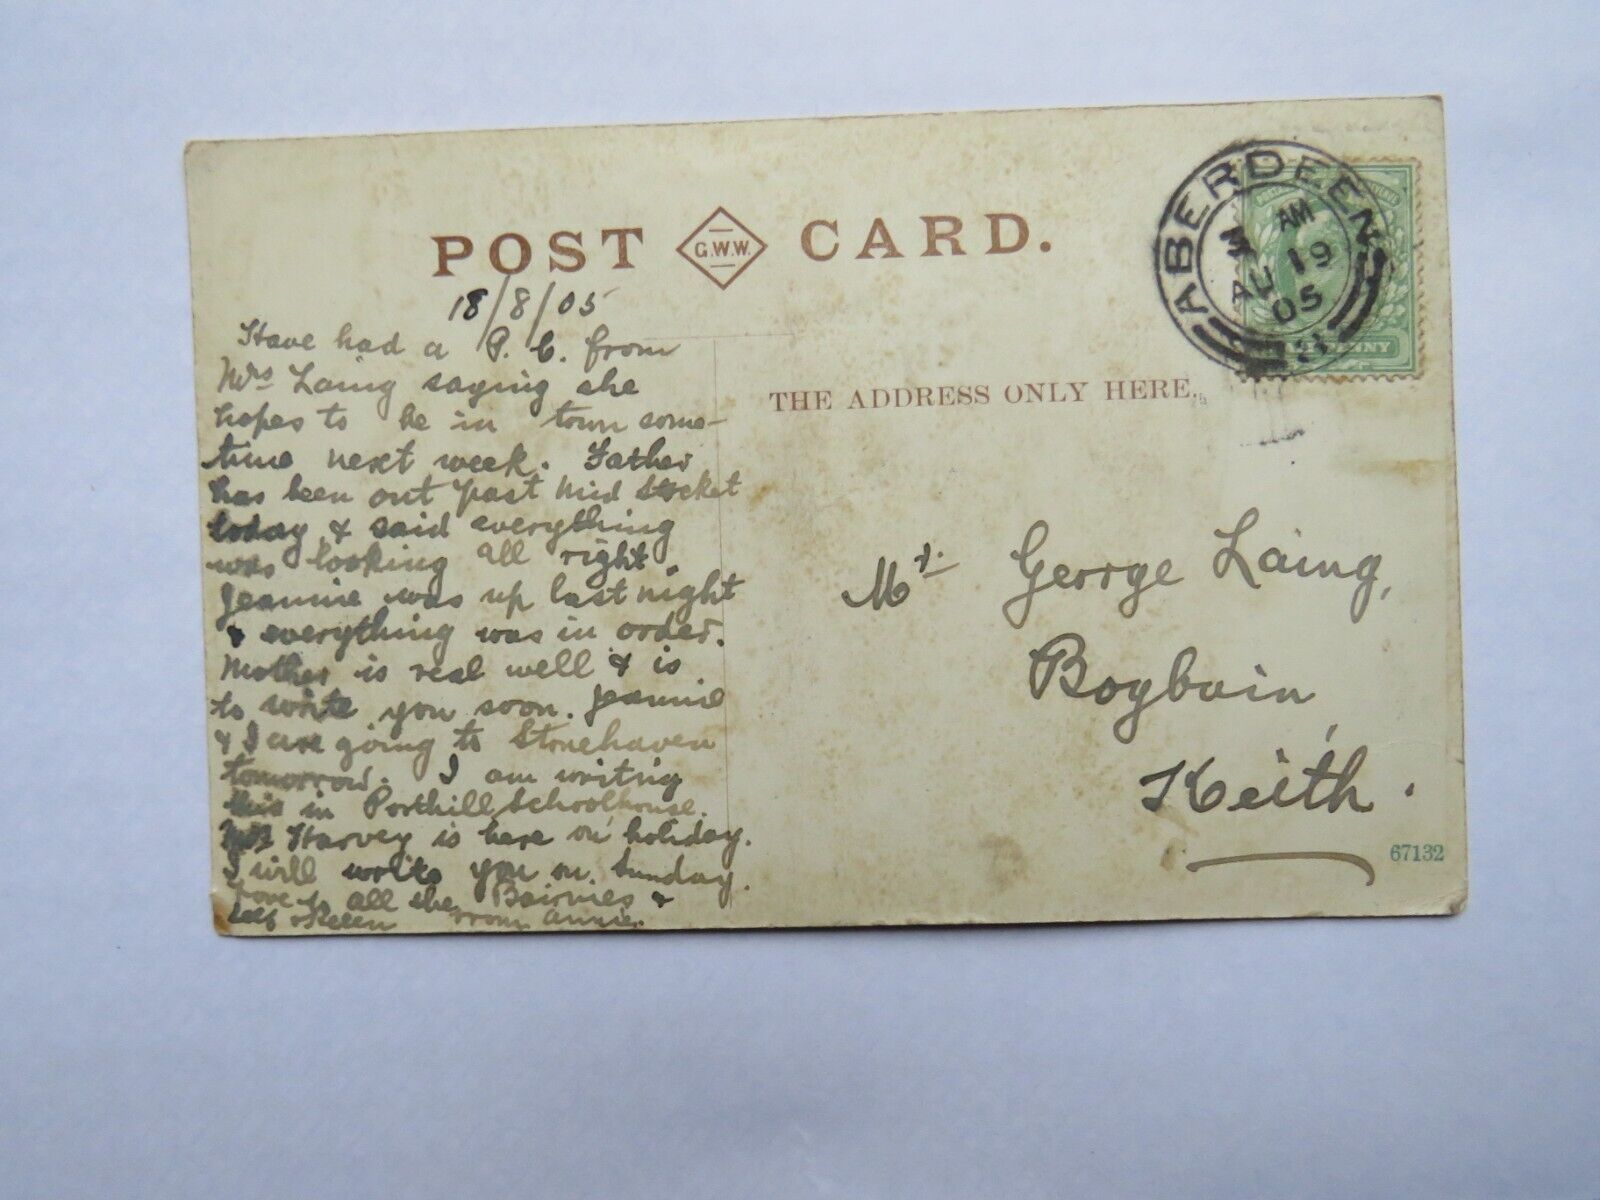 POST G.W.W. CARD.
18/8/05
Have had a P.C. from
Mrs Laing saying she
hopes to be in town some-
time next week. Father
has been out past Mid Stocket
today & said everything
was looking all right.
Jeannie was up last night
& everything was in order.
Mother is real well & is
to write you soon. Jeannie
& I are going to Stonehaven
tomorrow. I am writing
this in Porthill Schoolhouse.
Harvey is here on holiday.
I will write you on Sunday.
Love to all the Bairnies &
self from Annie.
ABERDEEN
AM
AU 19
05
THE ADDRESS ONLY HERE.
Mr. George Laing,
Bogbain,
Keith.
67132